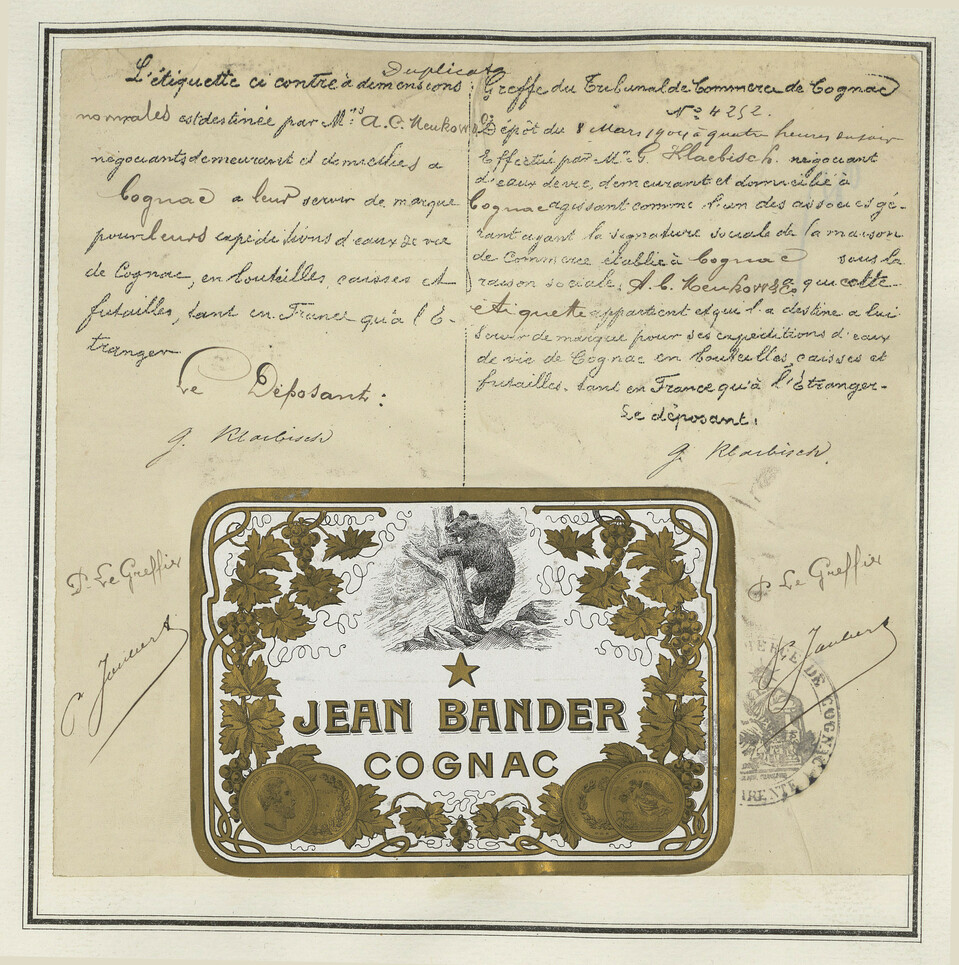 Duplicata
L'étiquette ci contre à dimensions
normales est destinée par M.rs A. C. Meukow
négociants demeurant et domiciliés a
Cognac a leur servir de marque
pour leurs expéditions d'eaux de vie
de Cognac, en bouteilles, caisses et
futailles, tant en France qu'à l'É-
tranger
Le Déposant:
G. Klaebisch
Greffe du Tribunal de Commerce de Cognac
N° 4252.
Dépôt du 8 Mars 1904 à quatre heures du soir
Effectué par Mr G. Klaebisch. négociant
d'eaux de vie, demeurant et domicilié à
Cognac agissant comme l'un des associés gé-
rant ayant la signature sociale de la maison
de Commerce établie à Cognac sous la
raison sociale. A. C. Meukow & Co que cette
étiquette appartient et qu'il a destine a lui
servir de marque pour ses expéditions d'eaux
de vie de Cognac en bouteilles, caisses et
futailles. tant en France qu'à l'Étranger-
Le déposant.
G. Klaebisch.
P. Le Greffier
P. Le Greffier
JEAN BANDER
COGNAC
DE COGNAC